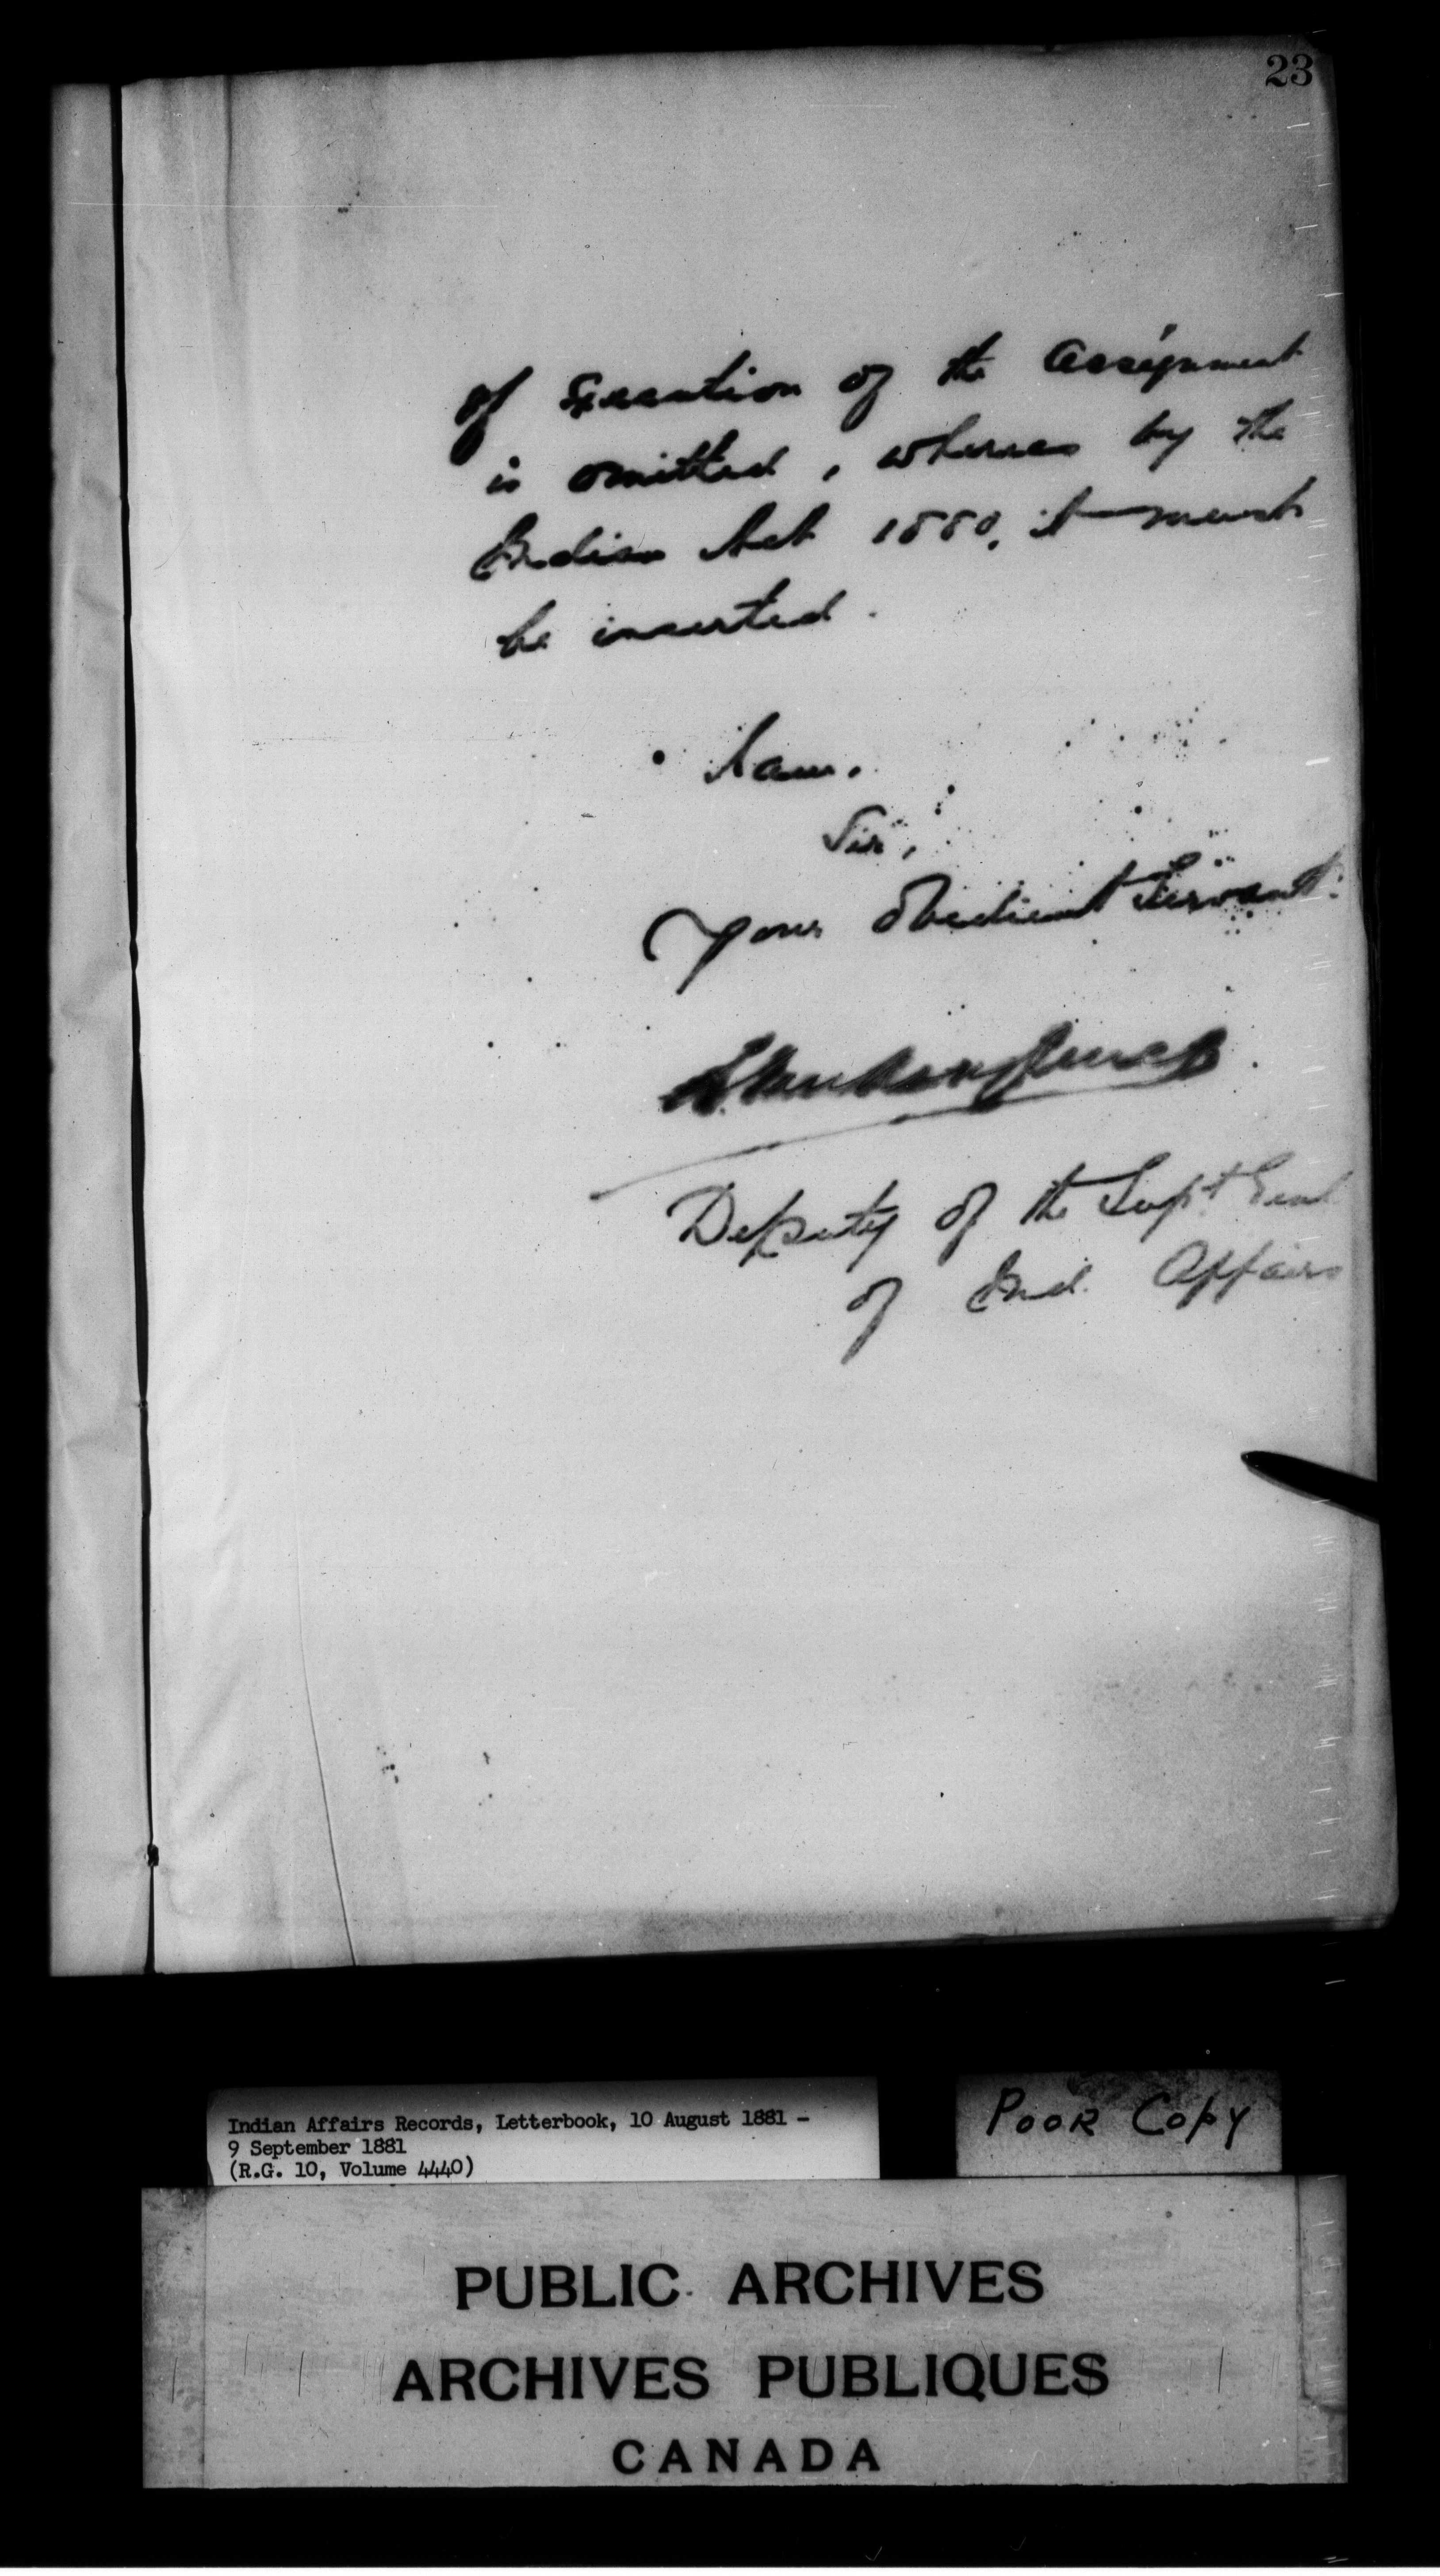 23
of Execution of the Assignment
is omitted, whereas by the
Indian Act 1880, it must
be inserted.
I am,
Sir,
Your Obedient Servant.
L. Vankoughnet
Deputy of the Supt Genl
of Ind. Affairs
Indian Affairs Records, Letterbook, 10 August 1881 -
9 September 1881
(R.G. 10, Volume 4440)
POOR COPY
PUBLIC ARCHIVES
ARCHIVES PUBLIQUES
CANADA